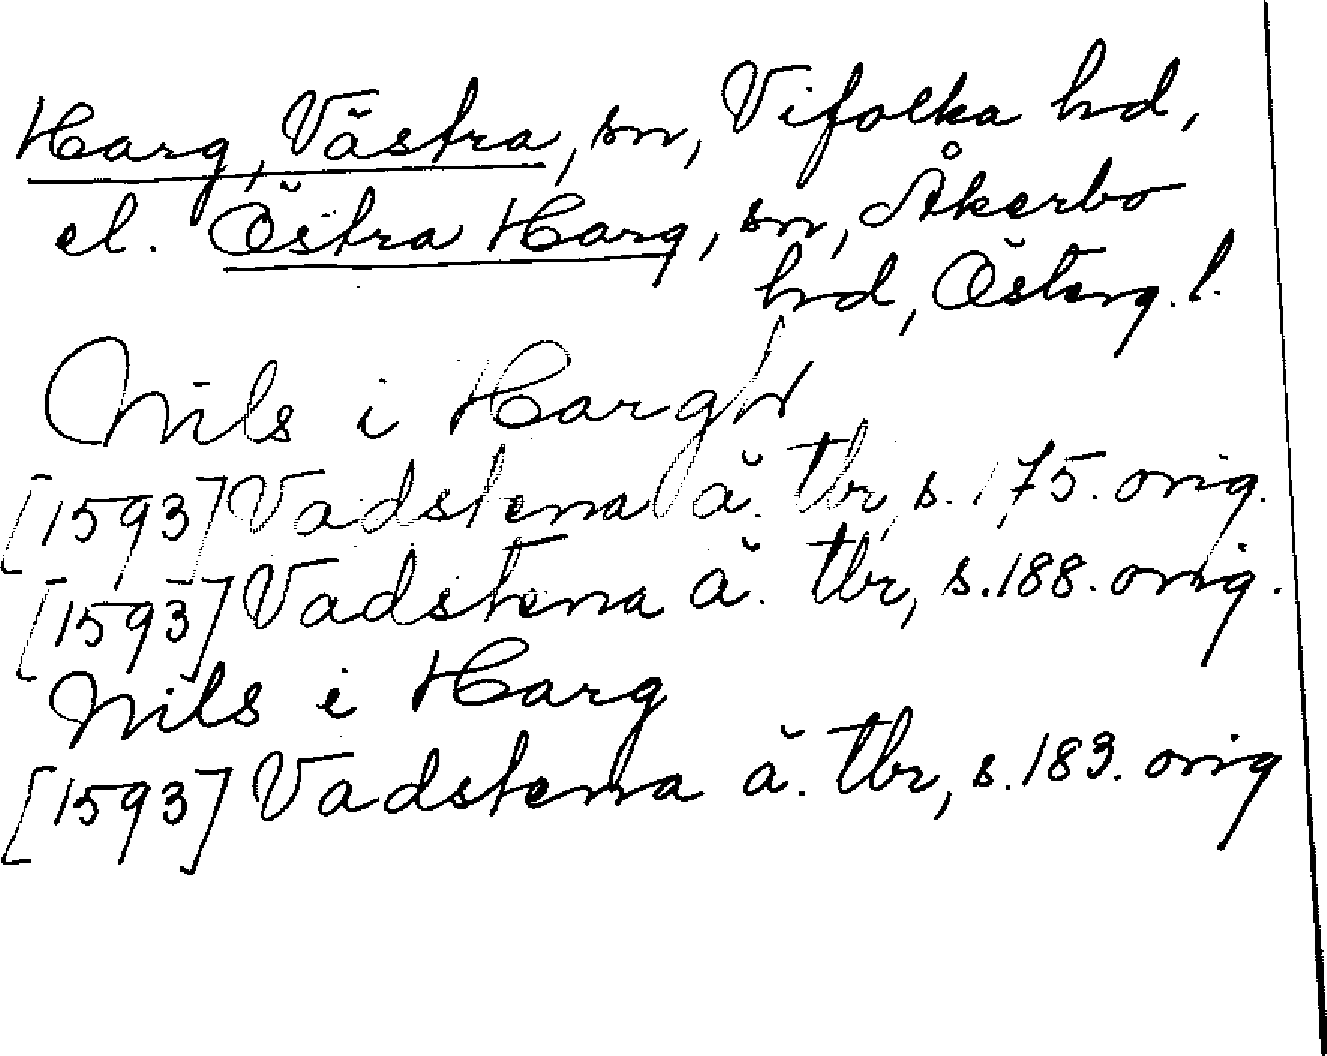 Harg, Västra, sn, Vifolka hd,
el. Östra Harg, sn, Åkerbo
hd, Österg. l.
Nils i Hargh
[1593] Vadstena ä. tbr, s. 175. orig.
[1593] Vadstena ä. tbr, s. 188. orig.
Nils i Harg
[1593] Vadstena ä. tbr, s. 183. orig